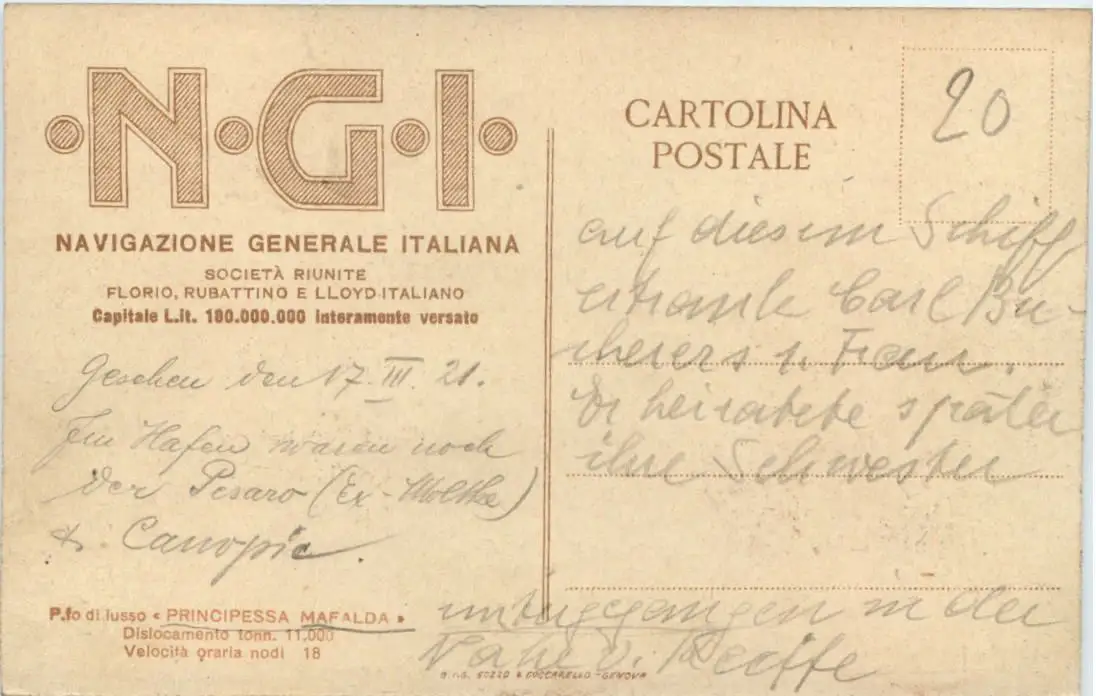 ·N·G·I·
NAVIGAZIONE GENERALE ITALIANA
SOCIETÀ RIUNITE
FLORIO, RUBATTINO E LLOYD ITALIANO
Capitale L.it. 180.000.000 interamente versato
CARTOLINA
POSTALE
20
Gesehen den 17. III. 21.
Im Hafen waren noch
der Pesaro (Ex-Moltke)
&. Canopic.
auf diesem Schiff
ertrank Carl Bu-
cherers 1. Frau.
Er heiratete später
ihre Schwester
untergegangen in der
Nähe v.
P.fo di lusso « PRINCIPESSA MAFALDA »
Dislocamento tonn. 11,000
Velocità oraria nodi 18
COCCARELLO - GENOVA